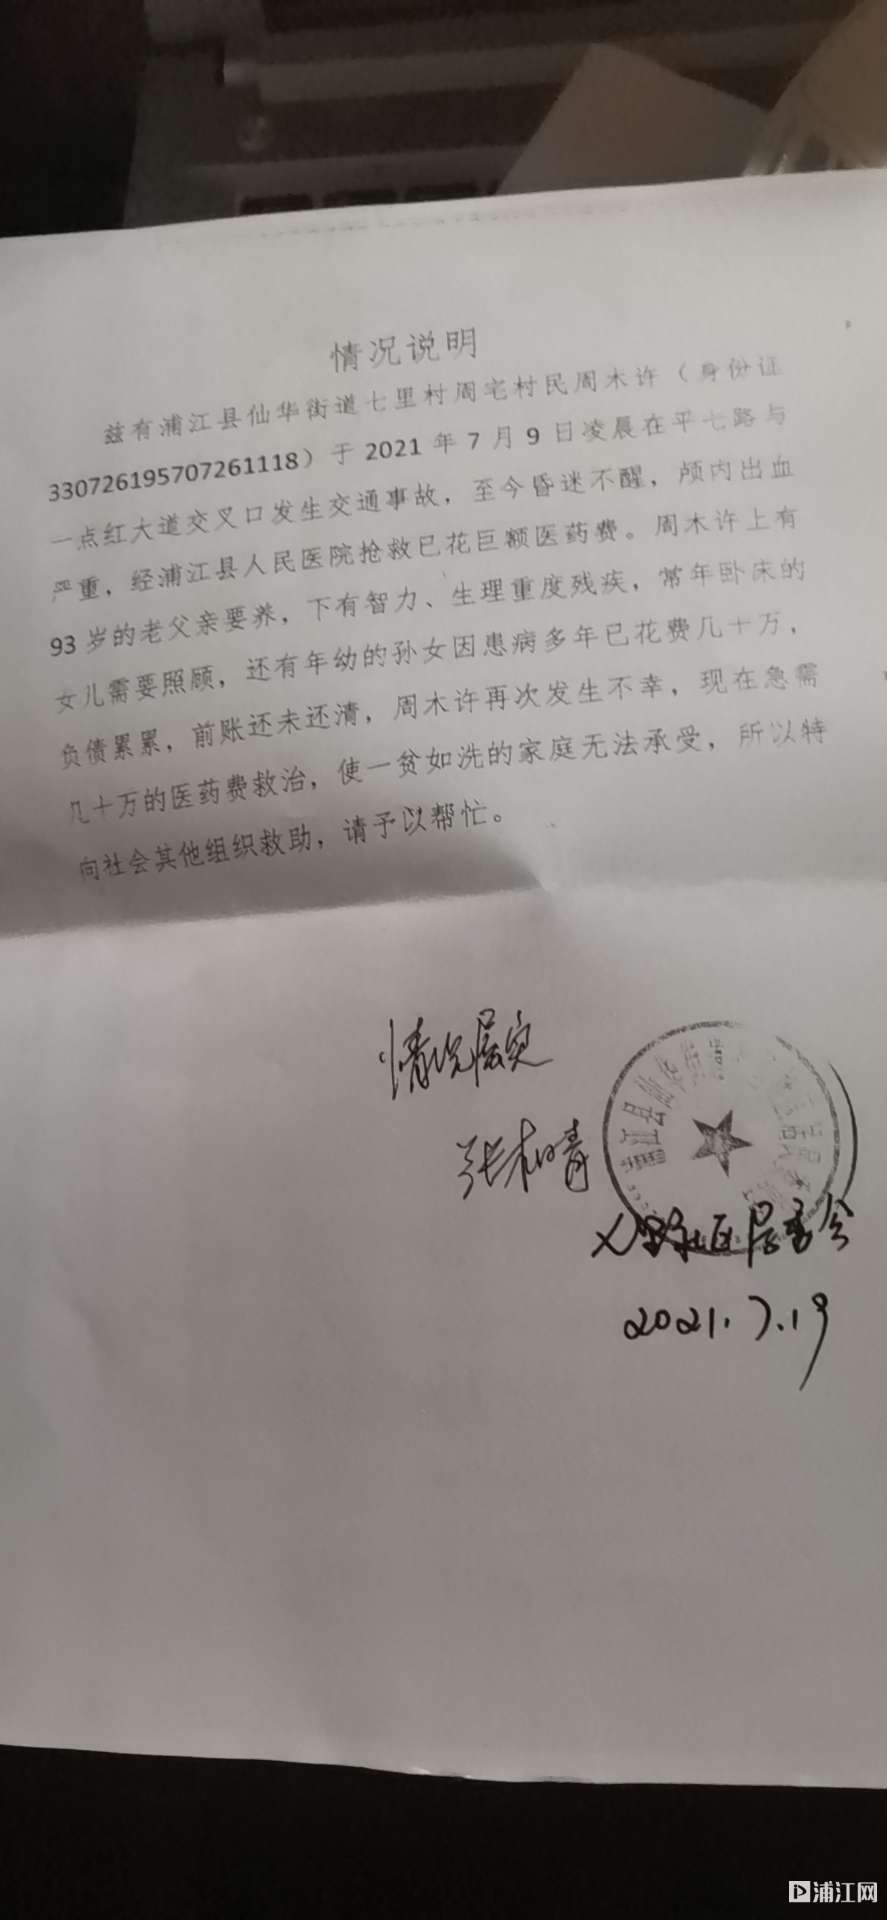 情况说明
兹有浦江县仙华街道七里村周宅村民周木许（身份证
330726195707261118）于 2021 年 7 月 9 日凌晨在平七路与
一点红大道交叉口发生交通事故，至今昏迷不醒，颅内出血
严重，经浦江县人民医院抢救已花巨额医药费。周木许上有
93 岁的老父亲要养，下有智力、生理重度残疾，常年卧床的
女儿需要照顾，还有年幼的孙女因患病多年已花费几十万，
负债累累，前账还未还清，周木许再次发生不幸，现在急需
几十万的医药费救治，使一贫如洗的家庭无法承受，所以特
向社会其他组织救助，请予以帮忙。
情况属实
张柏青
浦江县仙华街道
七里社区居委会
2021.7.19
浦江网